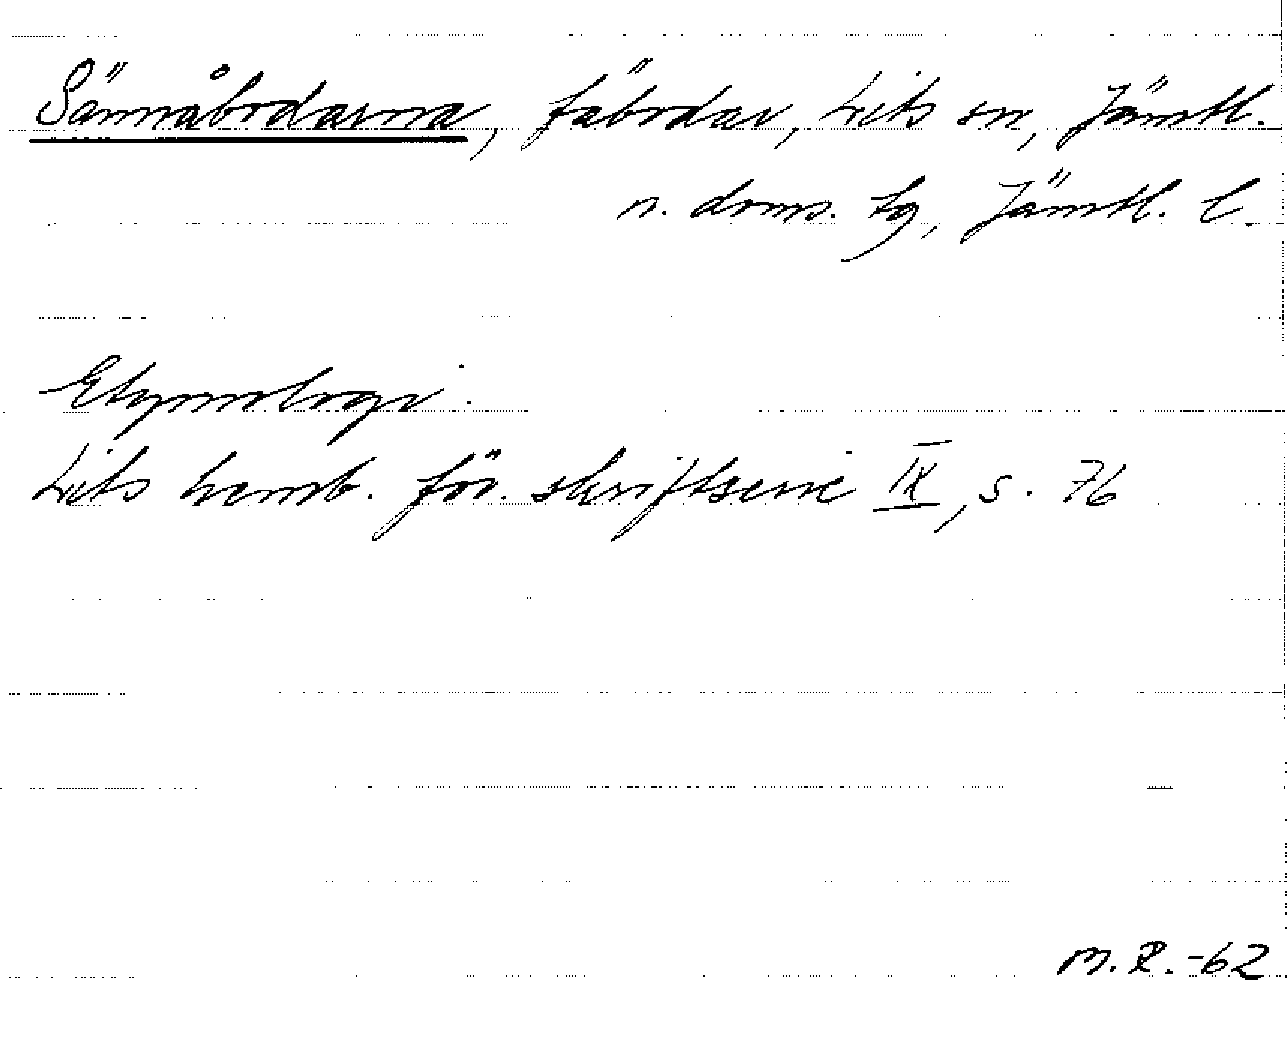 Sännåbodarna, fäbodar, Lits sn, Jämtl.
n. doms. tg, Jämtl. l.
Etymologi:
Lits hemb. för. skriftserie IX, s. 76
M.R.-62